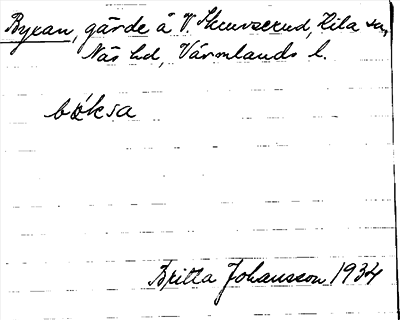 Byxan, gärde å V. Skurvserud, Kila sn,
Näs hd, Värmlands l.
bøksa
Britta Johansson 1934